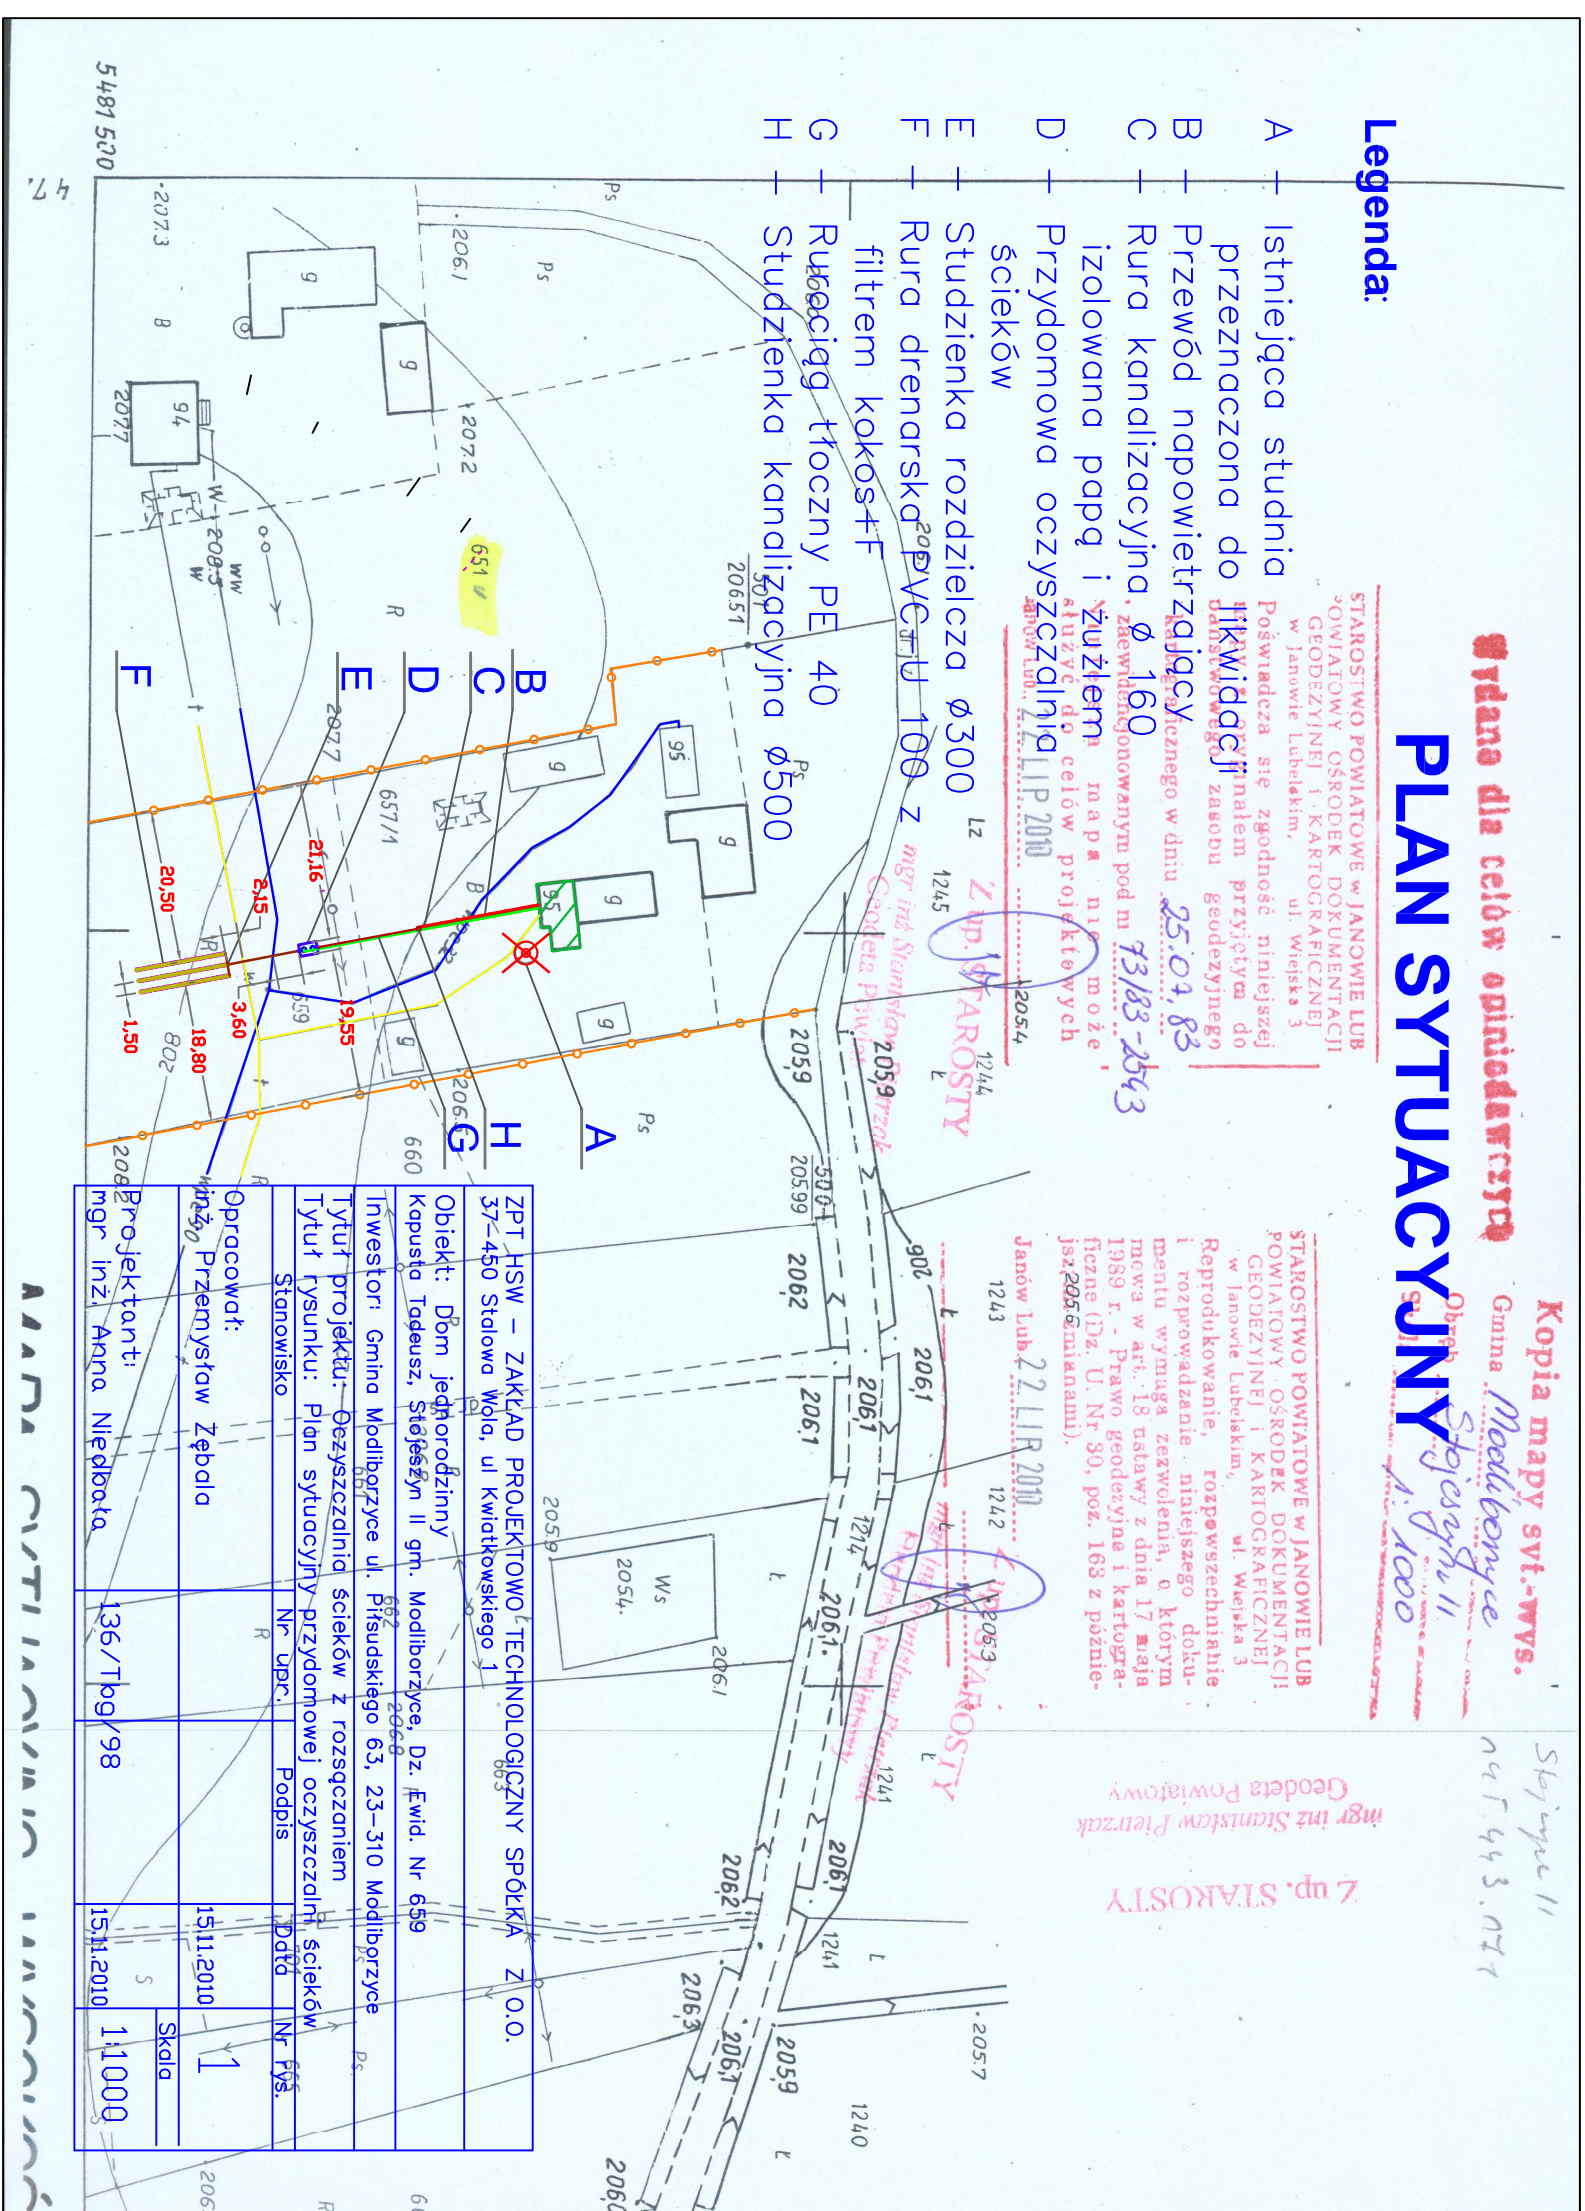 Kopia mapy syt.-wys.
Gmina Modliborzyce
Obręb Stojeszyn II
1:1000
Wydano dla celów opiniodawczych
PLAN SYTUACYJNY
Legenda:
A – Istniejąca studnia
przeznaczona do likwidacji
B – Przewód napowietrzający
C – Rura kanalizacyjna ø 160
izolowana papą i żużlem
D – Przydomowa oczyszczalnia
ścieków
E – Studzienka rozdzielcza ø300
F – Rura drenarska PVC-U 100 z
filtrem kokos+F
G – Rurociąg tłoczny PE 40
H – Studzienka kanalizacyjna ø500
STAROSTWO POWIATOWE w JANOWIE LUB
POWIATOWY OŚRODEK DOKUMENTACJI
GEODEZYJNEJ i KARTOGRAFICZNEJ
w Janowie Lubelskim, ul. Wiejska 3
Poświadcza się zgodność niniejszej
mapy z oryginałem przyjętym do
państwowego zasobu geodezyjnego
kartograficznego w dniu 25.07.83
zaewidencjonowanym pod nr 73/83-2543
Niniejsza mapa nie może
służyć do celów projektowych
Janów Lub. 22 LIP 2010
Z up. STAROSTY
mgr inż Stanisław Pietrzak
Geodeta Powiat
STAROSTWO POWIATOWE w JANOWIE LUB
POWIATOWY OŚRODEK DOKUMENTACJI
GEODEZYJNEJ i KARTOGRAFICZNEJ
w Janowie Lubelskim, ul. Wiejska 3
Reprodukowanie, rozpowszechnianie
i rozprowadzanie niniejszego doku-
mentu wymaga zezwolenia, o którym
mowa w art. 18 ustawy z dnia 17 maja
1989 r. - Prawo geodezyjne i kartogra-
ficzne (Dz. U. Nr 30, poz. 163 z późnie-
jszymi zmianami).
Janów Lub. 22 LIP 2010
Z up. STAROSTY
Z up. STAROSTY
mgr inż Stanisław Pietrzak
Geodeta Powiatowy
5481500
47.
207.3
B
g
206.1
Ps
Ps
g
207.2
94
207.7
208.5
W
ww
w
651
R
501
206.51
F
E
D
C
B
207.7
657/1
g
95
g
B
95
g
g
g
Lz
Ps
1245
1244
205.4
Ł
205,9
205,9
21,16
20,50
2,15
19,55
3,60
18,80
1,50
659
802
R
206.5
660
208.2
A
H
G
Ps
500
205.99
206,2
206,1
206,1
206,1
206
205.6
1243
1242
1214
206,1
205.3
1241
1241
1240
Ws
205.4
206.1
205.9
206,2
206,1
206,3
206,1
205,9
205.7
Ł
Ł
661
662
663
206.8
665
ZPT HSW – ZAKŁAD PROJEKTOWO TECHNOLOGICZNY SPÓŁKA Z O.O.
37–450 Stalowa Wola, ul Kwiatkowskiego 1
Obiekt: Dom jednorodzinny
Kapusta Tadeusz, Stojeszyn II gm. Modliborzyce, Dz. Ewid. Nr 659
Inwestor: Gmina Modliborzyce ul. Piłsudskiego 63, 23–310 Modliborzyce
Tytuł projektu: Oczyszczalnia ścieków z rozsączaniem
Tytuł rysunku: Plan sytuacyjny przydomowej oczyszczalni ścieków
Stanowisko Nr upr. Podpis Data Nr rys.
Opracował:
inż. Przemysław Zębala 15.11.2010 1
Projektant:
mgr inż. Anna Niedbała 136/Tbg/98 15.11.2010
Skala
1:1000